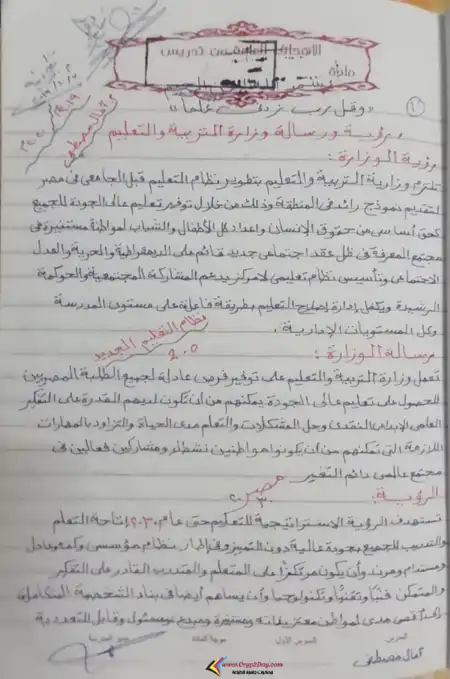 «وقل رب زدنى علما»
رؤية ورسالة وزارة التربية والتعليم
رؤية الوزارة:
تلتزم وزارة التربية والتعليم بتطوير نظام التعليم قبل الجامعى فى مصر
لتقديم نموذج رائد فى المنطقة وذلك من خلال توفير تعليم عالى الجودة للجميع
كحق أساسى من حقوق الإنسان وإعداد كل الأطفال والشباب لمواطنة مستنيرة فى
مجتمع المعرفة فى ظل عقد اجتماعى جديد قائم على الديمقراطية والحرية والعدل
الاجتماعى وتأسيس نظام تعليمى لامركزى يدعم المشاركة المجتمعية والحوكمة
الرشيدة ويكفل إدارة إصلاح التعليم بطريقة فاعلة على مستوى المدرسة
وكل المستويات الإدارية.
نظام التعليم الجديد
2.0
رسالة الوزارة:
تعمل وزارة التربية والتعليم على توفير فرص عادلة لجميع الطلبة المصريين
للحصول على تعليم عالى الجودة يمكنهم من أن تكون لديهم القدرة على التفكير
العلمى الإبداعى النقدى وحل المشكلات والتعلم مدى الحياة والتزاود بالمهارات
اللازمة التى تمكنهم من أن يكونوا مواطنين نشطاء ومشاركين فعالين فى
مجتمع عالمى دائم التغير
الرؤية: مصر ٢٠٣٠
تستهدف الرؤية الاستراتيجية للتعليم حتى عام ٢٠٣٠ إتاحة التعلم
والتدريب للجميع بجودة عالية دون التمييز وفى إطار نظام مؤسسى وكفء وعادل
ومستدام ومرن وأن يكون مرتكزًا على المتعلم والمتدرب القادر على التفكير
والمتمكن فنيًا وتقنيًا وتكنولوجيا وأن يساهم أيضا فى بناء الشخصية المتكاملة
لأقصى مدى لمواطن معتز بذاته ومستنير ومبدع ومسئول وقابل للتعددية
آمال مصطفى
www.Cryp2Day.com